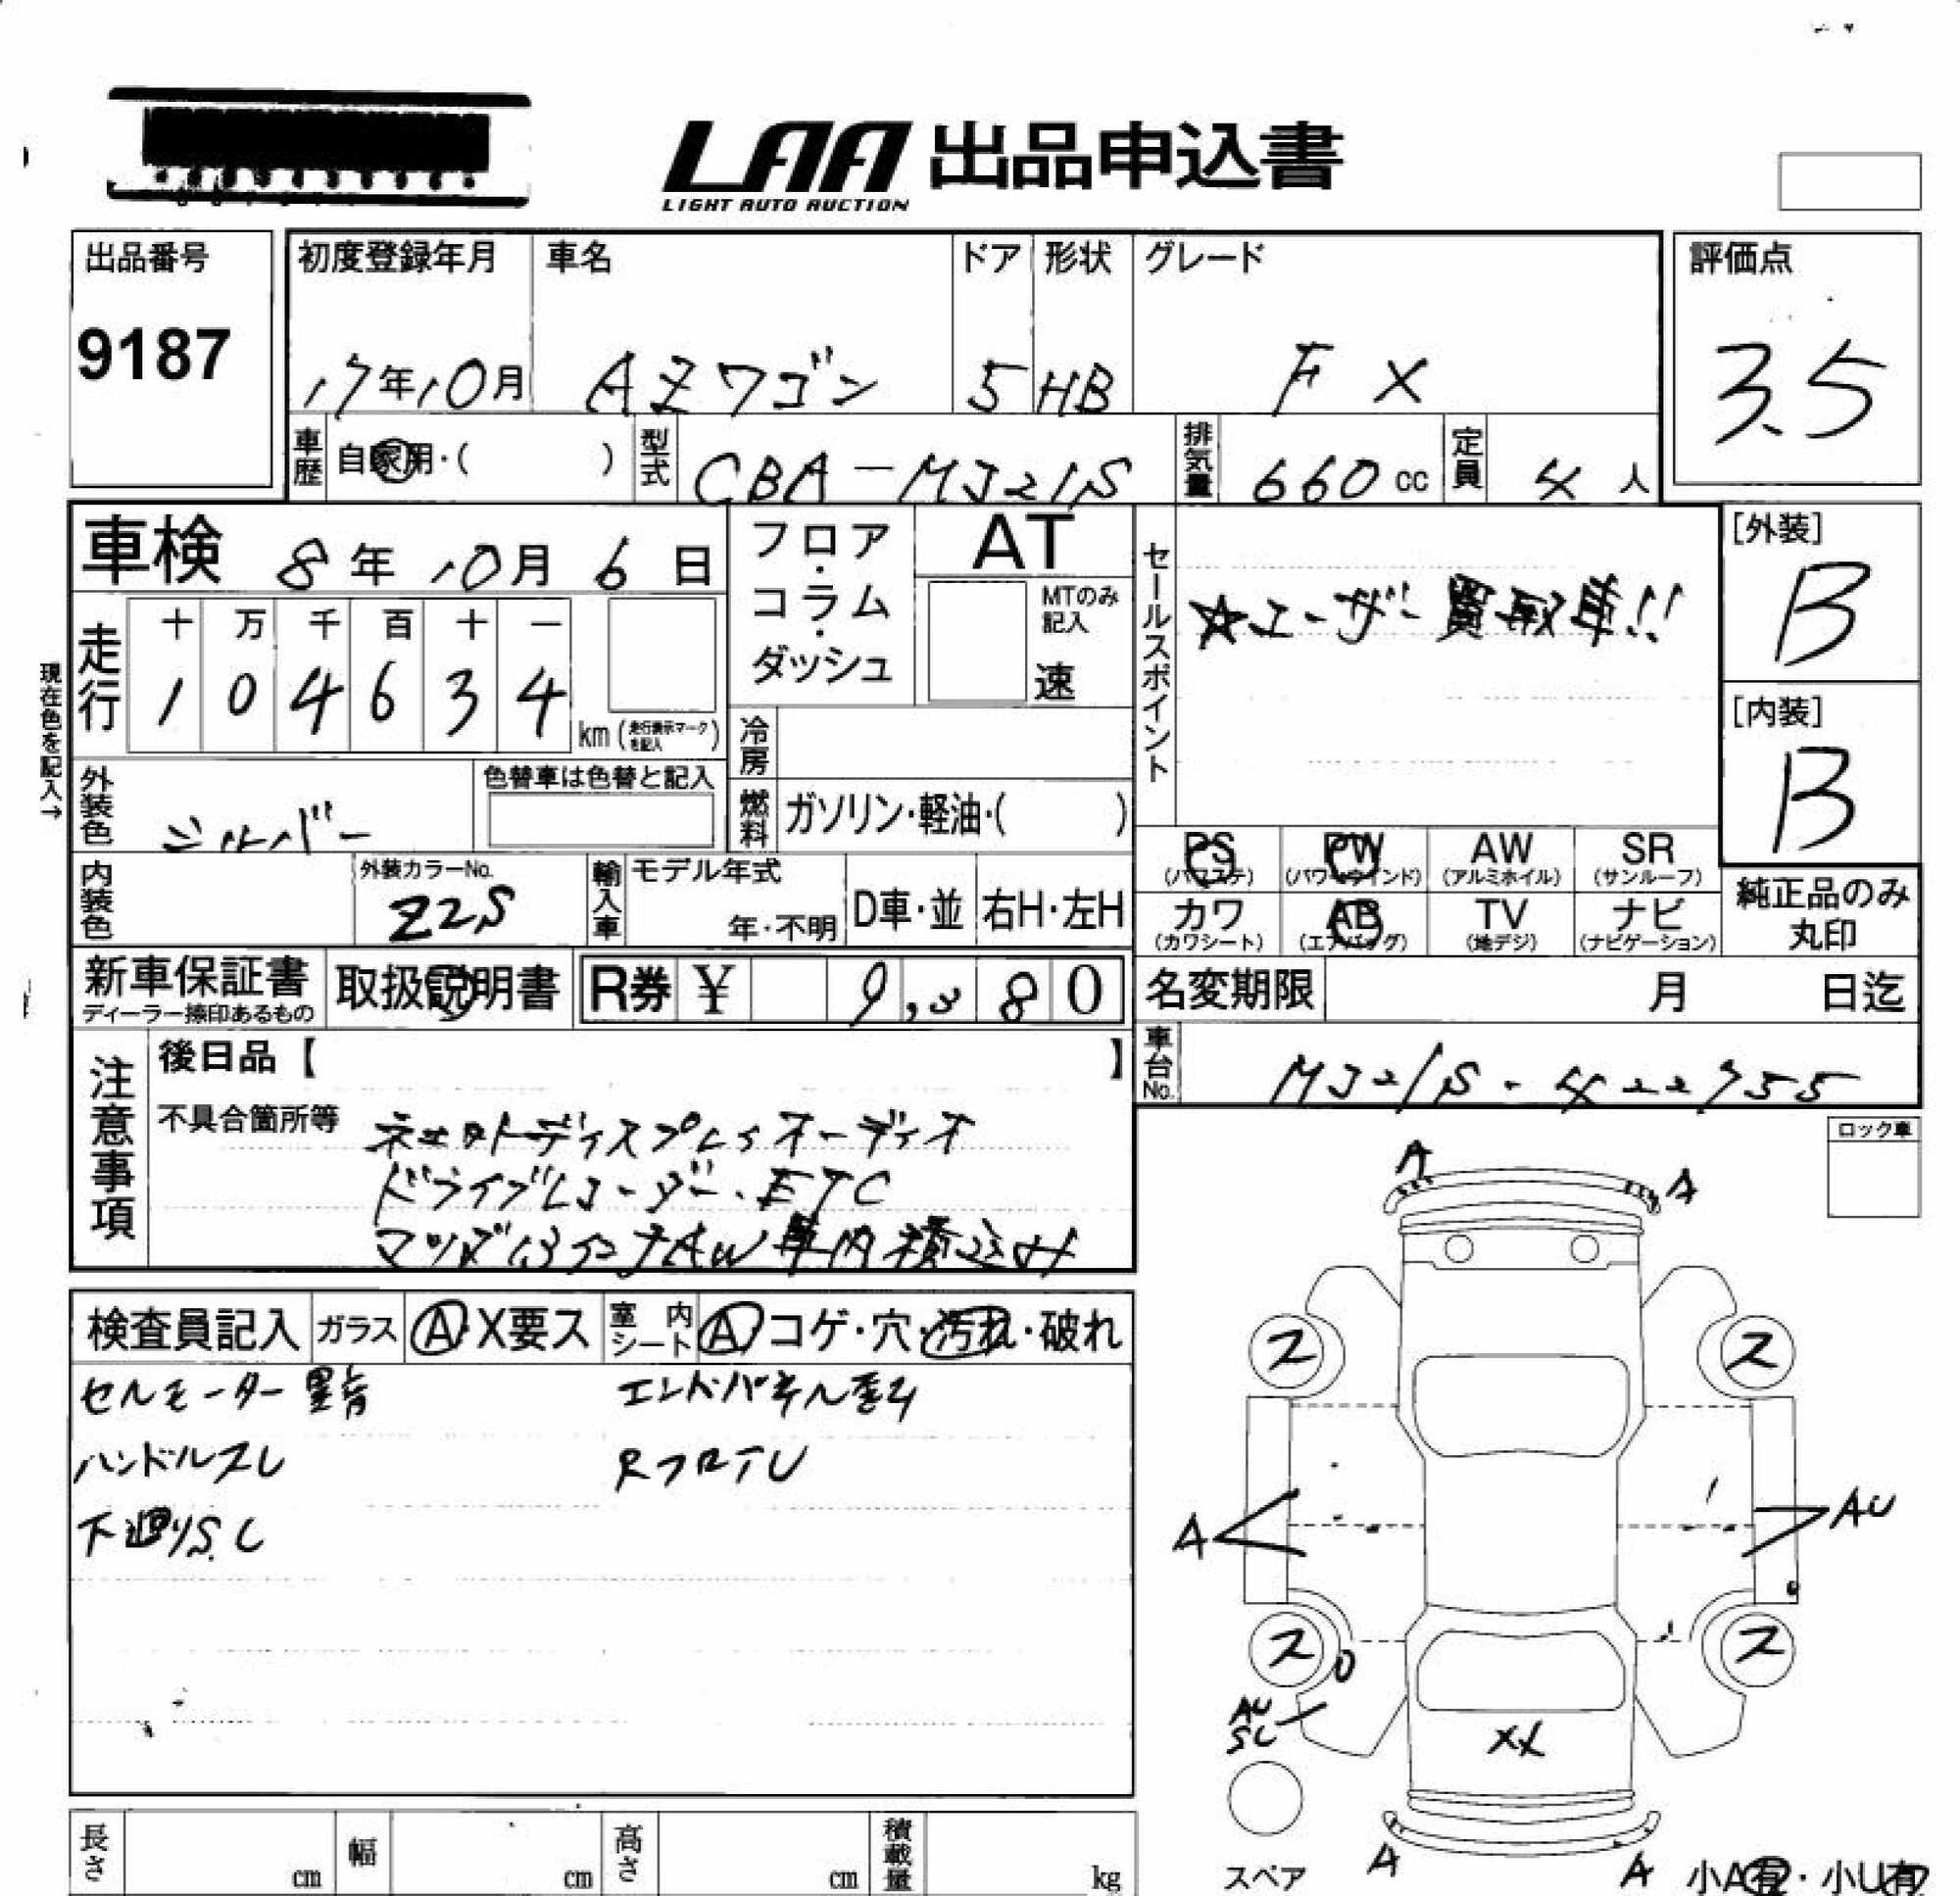 LAA 出品申込書
LIGHT AUTO AUCTION
出品番号
9187
初度登録年月
17年10月
車名
AZワゴン
ドア
5
形状
HB
グレード
F X
評価点
3.5
車歴
自家用・( )
型式
CBA-MJ21S
排気量
660 cc
定員
4 人
車検 8年10月6日
走行
十 万 千 百 十 一
1 0 4 6 3 4
km (走行表示マークを記入)
現在色を記入→
フロア・コラム・ダッシュ
AT
MTのみ記入
速
冷房
燃料
ガソリン・軽油・( )
セールスポイント
☆ユーザー買取車!!
[外装]
B
[内装]
B
外装色
シルバー
色替車は色替と記入
内装色
外装カラーNo.
Z2S
輸入車
モデル年式
年・不明
D車・並
右H・左H
PS
(パワステ)
PW
(パワーウインド)
AW
(アルミホイル)
SR
(サンルーフ)
カワ
(カワシート)
AB
(エアバッグ)
TV
(地デジ)
ナビ
(ナビゲーション)
純正品のみ
丸印
新車保証書
ディーラー捺印あるもの
取扱説明書
R券 ¥ 9,880
名変期限 月 日迄
車台No.
MJ21S-422755
注意事項
後日品【 】
不具合箇所等
ディスプレイオーディオ
ドライブレコーダー、ETC
AW車内積込み
ロック車
検査員記入
ガラス
A・X要ス
室内シート
A コゲ・穴・汚れ・破れ
セルモーター異音
エンドパネル歪み
ハンドルスレ
RフロアU
下廻りS.C
A
A
ス
ス
A
AU
ス
ス
AU
SC
XX
A
A
スペア
小A有・小U有
長さ cm
幅 cm
高さ cm
積載量 kg